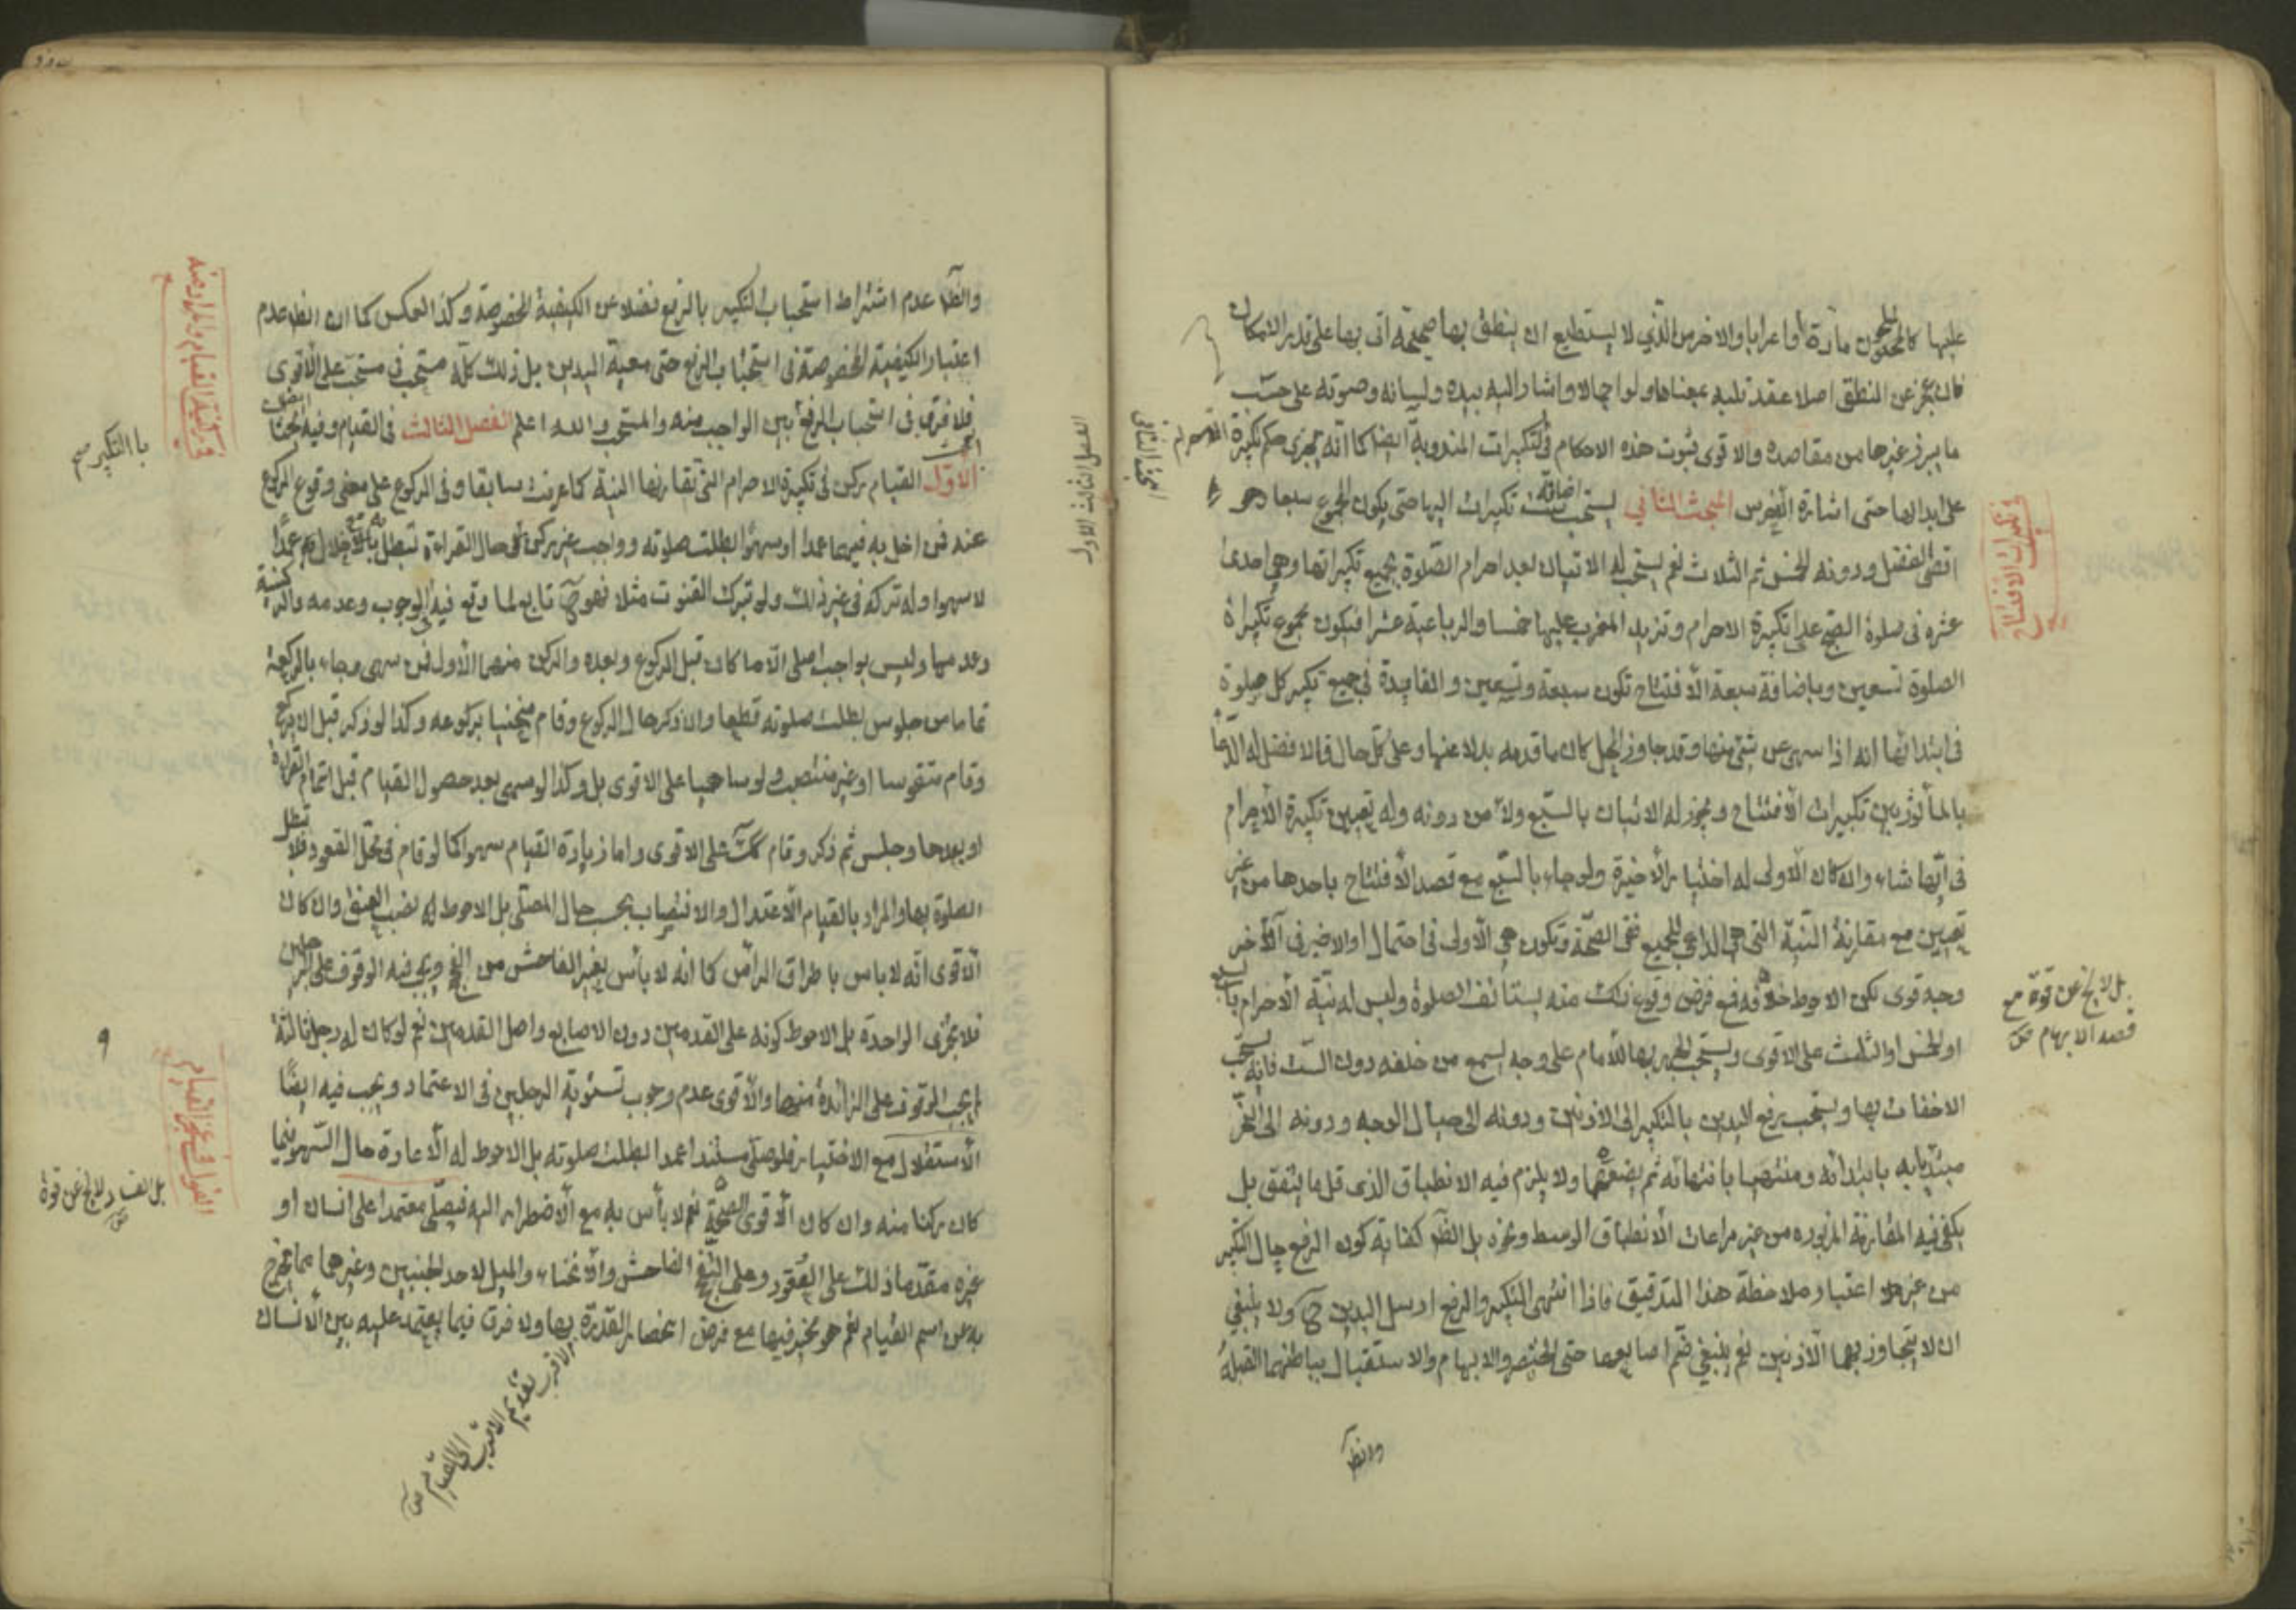 عليها كالملحون مادة أو اعرابا والاخرس الذي لا يستطيع ان ينطق بها صحيحة اتى بها على قدر الامكان
فان عجز عن النطق اصلا عقد قلبه بمعناها ولو اجمالا واشار اليه بيده ولسانه وصوته على حسب
ما يبرز غيرها من مقاصده والاقوى ثبوت هذه الاحكام في التكبيرات المندوبة ايضا كما انه يجزى حكم تكبيرة الاحرام
على ابدالها حتى اشارة الاخرس المبحث الثاني يستحب اضافة ست تكبيرات اليها حتى يكون المجموع سبعا وهو
اقصى الفضل ودونه الخمس ثم الثلاث نعم يستحب له الاتيان بعد احرام الصلوة بجميع تكبيراتها وهي احدى
عشرة في صلوة الصبح عدا تكبيرة الاحرام وتزيد المغرب عليها خمسا والرباعية عشرا فيكون مجموع تكبيرات
الصلوة تسعين وباضافة سبعة الافتتاح تكون سبعة وتسعين والفايدة في جميع تكبير كل صلوة
في ابتدائها انه اذا سهى عن شئ منها وقد جاوز المحل كان ما قدمه بدلا عنها وعلى كل حال فالافضل له الدعا
بالمأثور بين تكبيرات الافتتاح ويجوز له الاتيان بالسبع ولاء من دونه وله تعيين تكبيرة الاحرام
في ايها شاء وان كان الاولى له اختيار الاخيرة ولو جاء بالسبع مع قصد الافتتاح باحدها من غير
تعيين مع مقارنة النية التي هي الداعي للجميع ففي الصحة وتكون هي الاولى في احتمال او الاخير في آخر
وجه قوى لكن الاحوط خلافه فمع فرض وقوع ذلك منه يستانف الصلوة وليس له نية الاحرام بالسبع
او الخمس او الثلث على الاقوى ويستحب الجهر بها للامام على وجه يسمع من خلفه دون الست فانه يستحب
الاخفات بها ويستحب رفع اليدين بالتكبير الى الاذنين ودونه الى حيال الوجه ودونه الى النحر
مبتديا به بابتدائه ومنتهيا بانتهائه ثم يضعهما ولا يلزم فيه الانطباق الذى قل ما يتفق بل
يكفى فيه المقارنة المزبوره من غير مراعات الانطباق الوسط ونحوه بل الظ كفاية كون الرفع حال التكبير
من غير اعتبار ملاحظة هذا التدقيق فاذا انتهى التكبير والرفع ارسل اليدين ح ولا ينبغي
ان لا يتجاوز بهما الاذنين نعم ينبغي ضم اصابعهما حتى الخنصر والابهام والاستقبال بباطنهما القبلة
تكبيرات الافتتاح
بل لا يخ عن قوة مع
قصد الابهام
المبحث الثاني
والظ
الفصل الثالث الاول
والظ عدم اشتراط استحباب التكبير بالرفع فضلا عن الكيفية المخصوصة وكذا العكس كما ان الظ عدم
اعتبار الكيفية المخصوصة في استحباب الرفع حتى معية اليدين بل ذلك كله مستحب في مستحب على الاقوى
فلا فرق في استحباب الرفع بين الواجب منه والمستحب والله اعلم الفصل الثالث في القيام وفيه
الاول القيام ركن في تكبيرة الاحرام التي تقارنها النية كما عرفت سابقا وفي الركوع على معنى وقوع الركوع
عنه فمن اخل به فيهما عمدا او سهوا بطلت صلوته وواجب غير ركن في حال القراءة تبطل بالاخلال به عمدا
لا سهوا وله تركه في غير ذلك ولو تبرك القنوت مثلا فهو ح تابع لما وقع فيه في الوجوب وعدمه والركنية
وعدمها وليس بواجب اصلى الا ما كان قبل الركوع وبعده والركن منهما الاول فمن سهى وجاء بالركعة
تماما من جلوس بطلت صلوته قطعا وان ذكر حال الركوع وقام منحنيا بركوعه وكذا لو ذكر قبل ان يركع
وقام متقوسا او غير منتصب ولو ساهيا على الاقوى بل وكذا لو سهى بعد حصول القيام قبل اتمام القراءة
او بعدها وجلس ثم ذكر وقام على الاقوى واما زيادة القيام سهوا كما لو قام في محل القعود فلا تبطل
الصلوة بها والمراد بالقيام الاعتدال والانتصاب بحسب حال المصلى بل الاحوط له نصب العنق وان كان
الاقوى انه لا باس باطراق الراس كما انه لا بأس بغير الفاحش من ويجب فيه الوقوف على الرجلين
فلا يجزى الواحدة بل الاحوط كونه على القدمين دون الاصابع واصل القدمين نعم لو كان له رجل ثالثة
لم يجب الوقوف على الزائدة منهما والاقوى عدم وجوب تسوية الرجلين في الاعتماد ويجب فيه ايضا
الاستقلال مع الاختيار فلو صلى مستندا عمدا بطلت صلوته بل الاحوط له الاعادة حال السهو فيما
كان ركنا منه وان كان الاقوى الصحة نعم لا بأس به مع الاضطرار اليه فيصلى معتمدا على انسان او
غيره مقدما ذلك على القعود وعلى الفاحش والانحناء والميل لاحد الجنبين وغيرهما مما يخرج
به عن اسم القيام نعم هو مخير فيها مع فرض انحصار القدرة بها ولا فرق فيما يعتمد عليه بين الانسان
الاقرب تقديم الاقرب الى القيام
با التكبير
في القيام
القول في القيام
بل الفساد لا يخ عن قوة